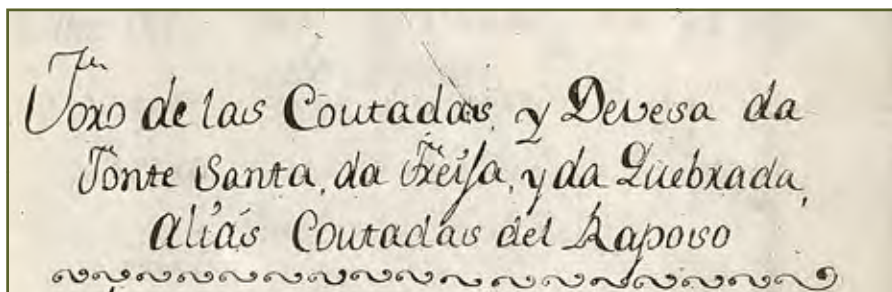 Foro de las Coutadas, y Devesa da
Fonte Santa, da Freija, y da Quebrada,
aliás Coutadas del Raposo